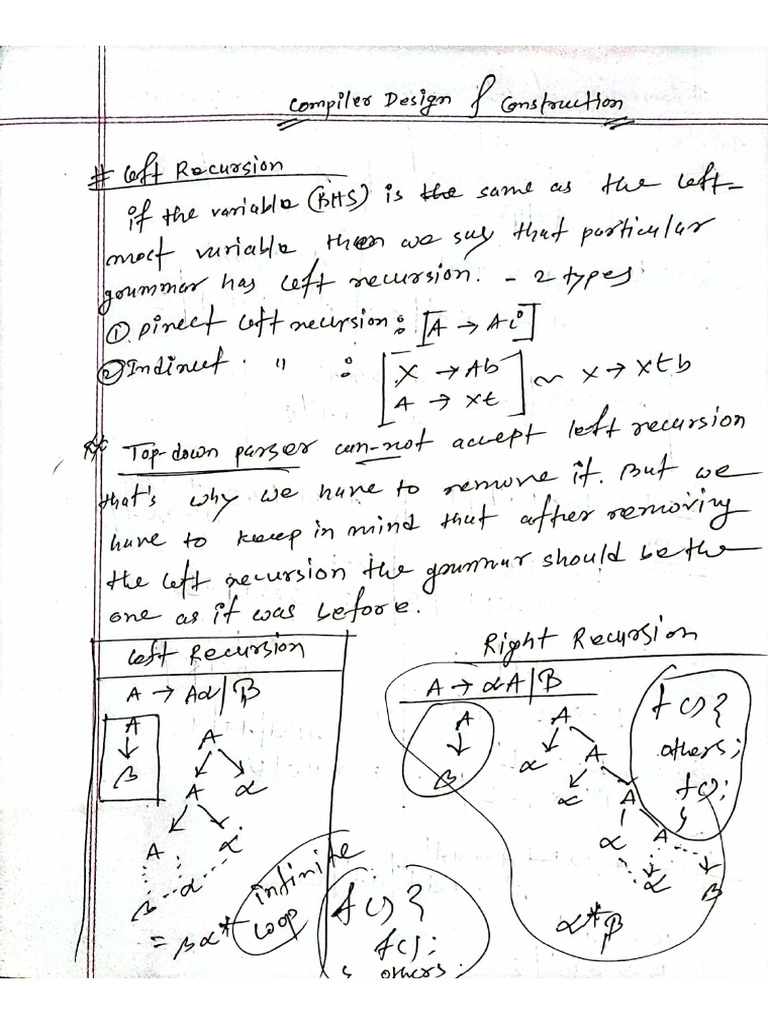 Compiler Design & Construction
# Left Recursion
if the variable (BHS) is the same as the left-
most variable then we say that particular
grammar has left recursion. - 2 types
① Direct left recursion : [A → Ai]
② Indirect " : [X → Ab
A → Xt] ~ X → Xtb
Top-down parser can-not accept left recursion
that's why we have to remove it. But we
have to keep in mind that after removing
the left recursion the grammar should be the
one as it was before.
Left Recursion
A → Aα | β
A
↓
β
A
A α
A α
β α
= βα*
infinite
loop
f() {
f();
} others;
Right Recursion
A → αA | β
A
↓
β
A
α A
α A
α A
α β
α*β
f() {
others;
f();
}